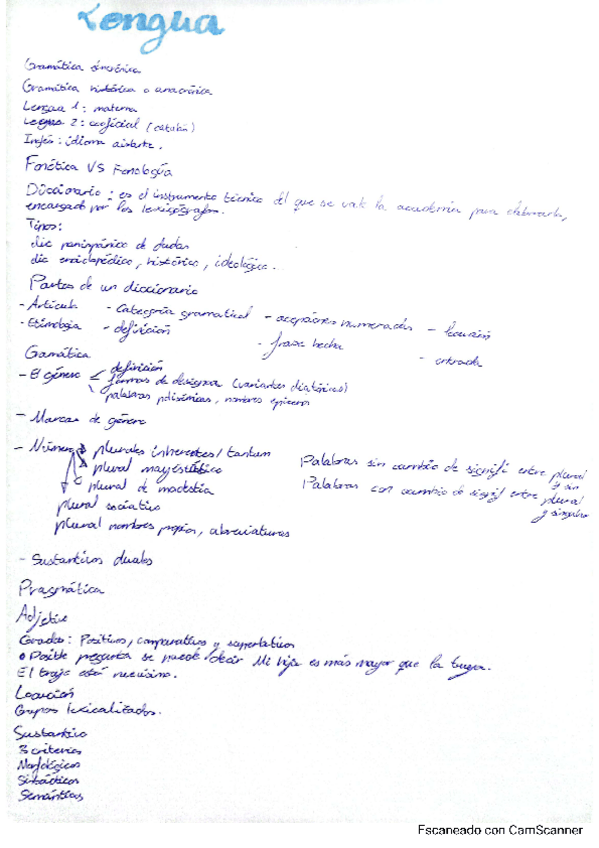 Lengua
Gramática sincrónica
Gramática histórica o anacrónica
Lengua 1: materna
Lengua 2: cooficial (catalán)
Inglés: idioma
Fonética VS Fonología
Diccionario: es el instrumento técnico del que se vale la academia para elaborarla,
encargado por los lexicógrafos.
Tipos:
dic panispánico de dudas
dic enciclopédico, histórico, ideológico.
Partes de un diccionario
- Artículo - Categoría gramatical - acepciones numeradas - locución
- Etimología - definición - frase hecha - entrada
Gamática
- El género definición
formas de designar (variantes diatópicas)
palabras polisémicas, nombres epicenos
- Marcas de género
- Número plurales inherentes/tantum
plural mayestático
plural de modestia
plural sociativo
plural nombres propios, abreviaturas
Palabras sin cambio de signifi entre plural
y sin
Palabras con cambio de signif entre plural
y singular
- Sustantivos duales
Pragmática
Adjetivo
Grados: Positivos, comparativos y superlativos
• Posible pregunta se puede decir Mi hija es más mayor que la tuya.
El traje está nuevísimo.
Locución
Grupos lexicalizados.
Sustantivo
3 criterios
Morfológicos
Sintácticos
Semánticos
Escaneado con CamScanner